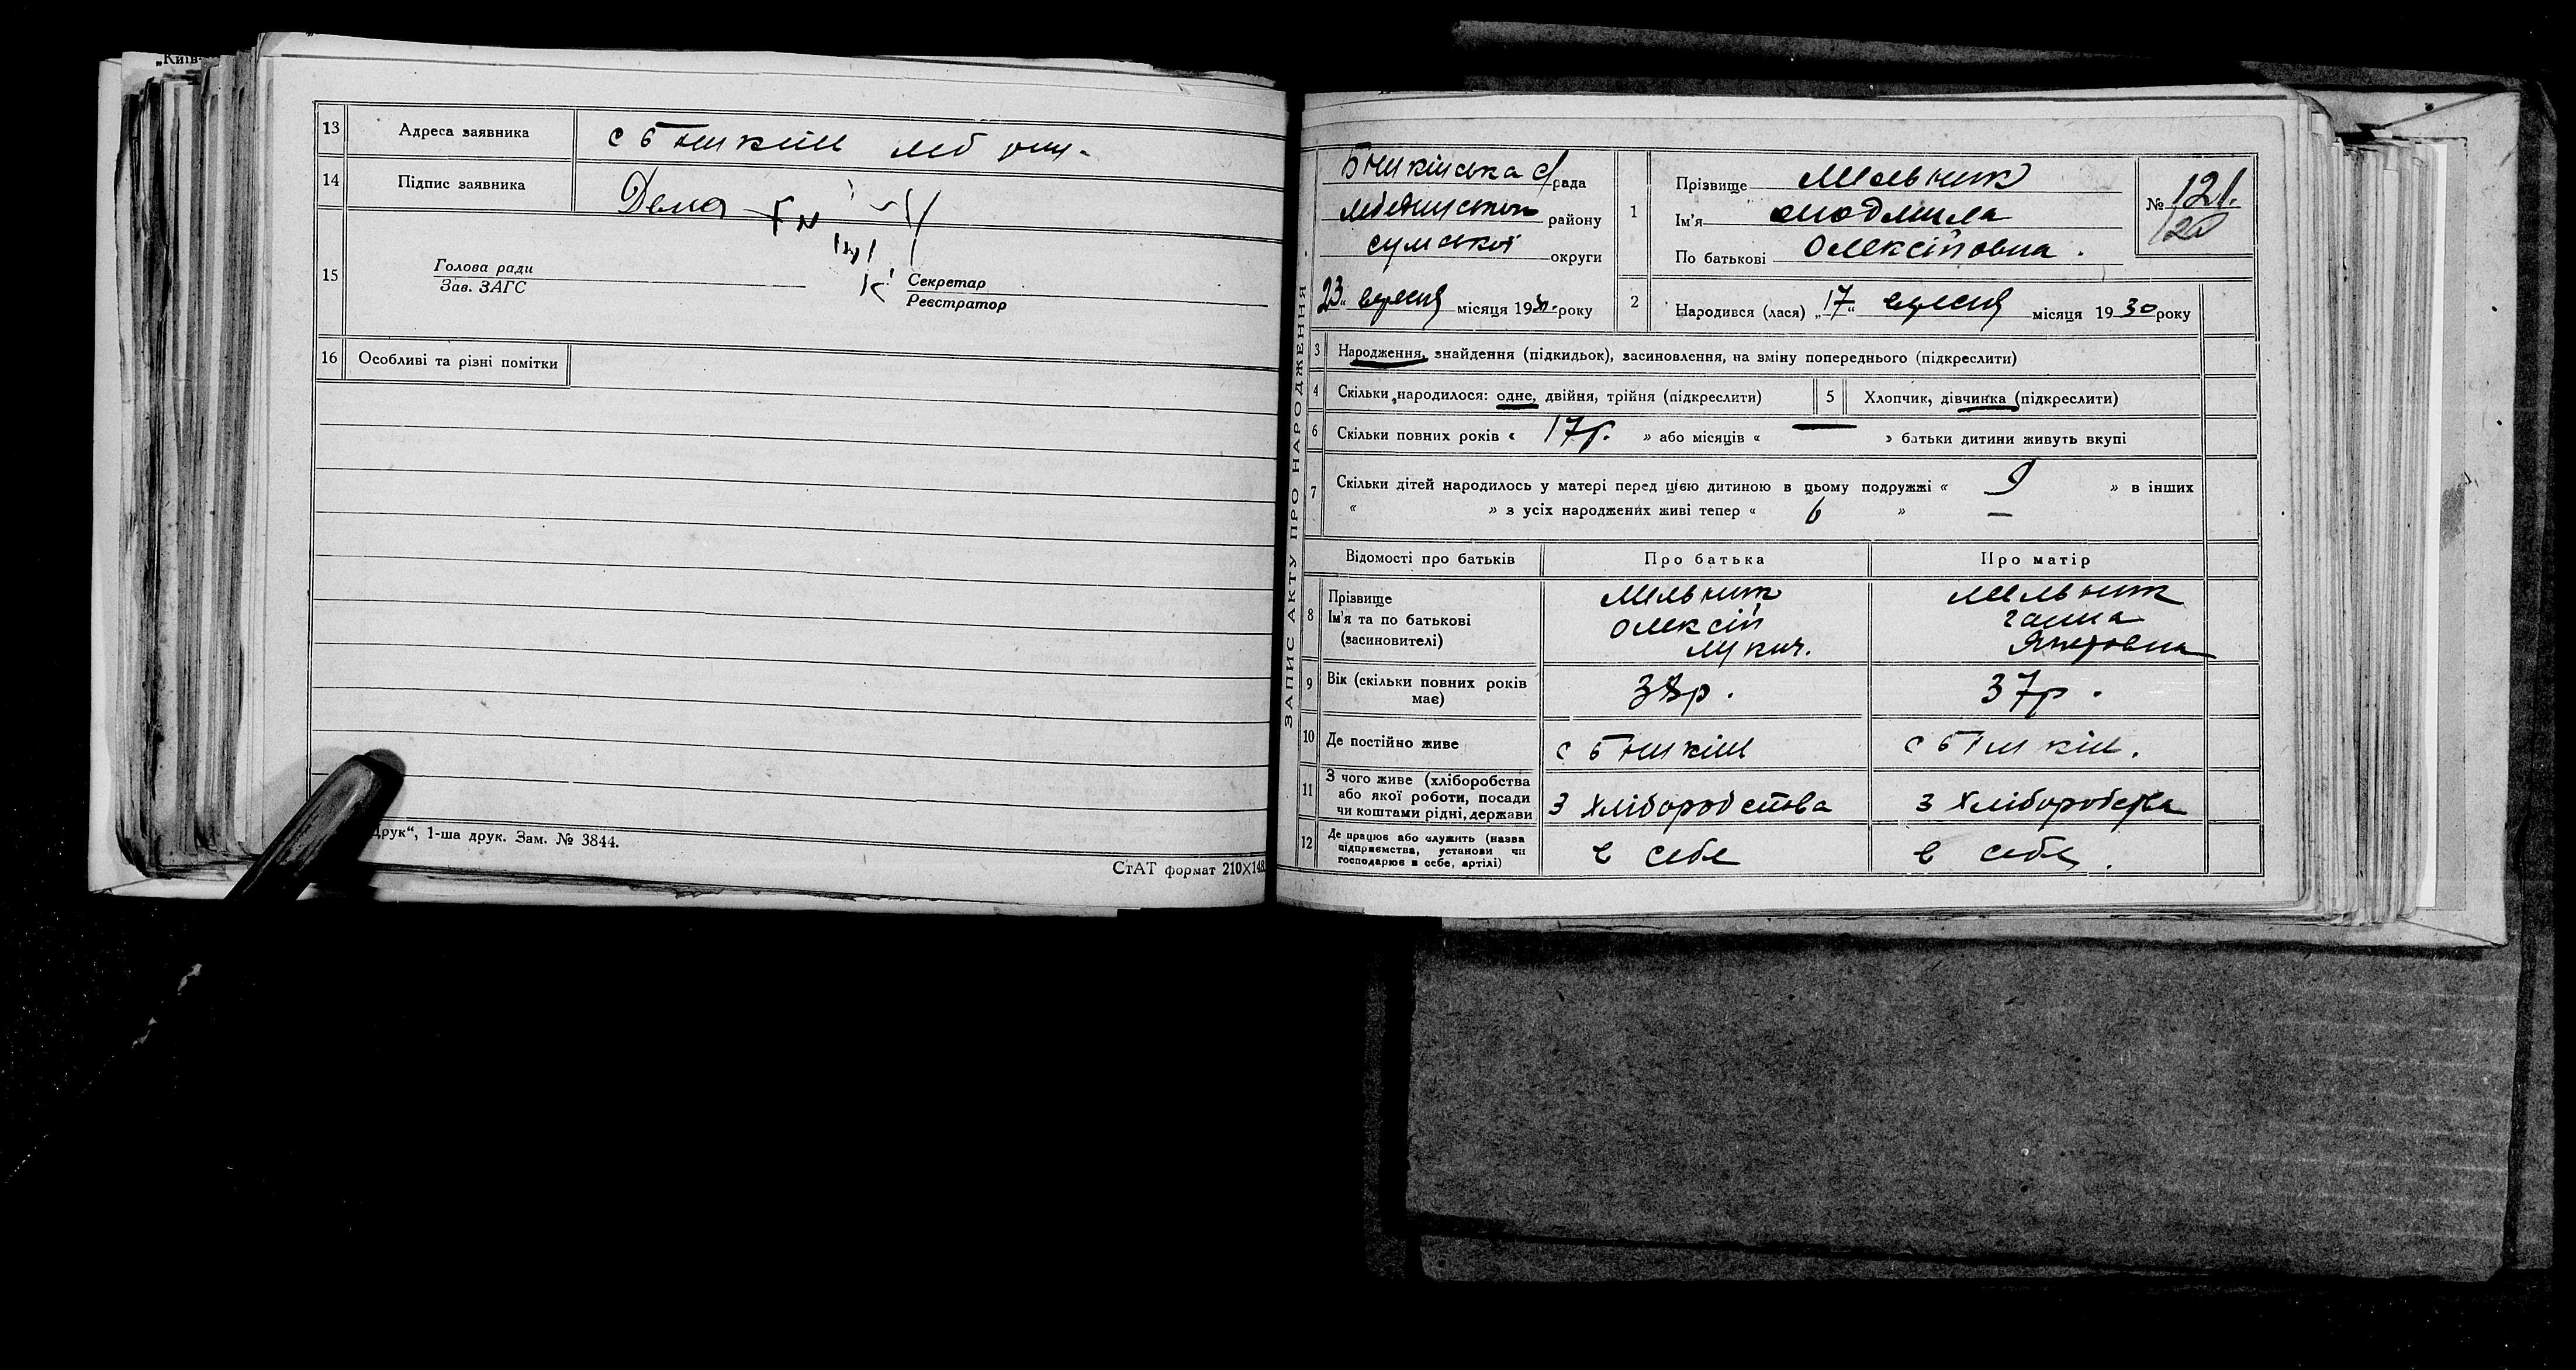 „Київ-
13 Адреса заявника с Бишкінь леб
14 Підпис заявника
15 Голова ради
Зав. ЗАГС
Секретар
Реєстратор
16 Особливі та різні помітки
Друк“, 1-ша друк. Зам. № 3844.
СтАТ формат 210X148.
ЗАПИС АКТУ ПРО НАРОДЖЕННЯ
Бишкінська с/рада
району
Сумської округи
„23“ вересня місяця 1930 року
1 Прізвище Мельник
Ім'я Людмила
По батькові Олексіївна.
№ 121.
120
2 Народився (лася) „17“ вересня місяця 1930 року
3 Народження, знайдення (підкидьок), засиновлення, на зміну попереднього (підкреслити)
4 Скільки народилося: одне, двійня, трійня (підкреслити)
5 Хлопчик, дівчинка (підкреслити)
6 Скільки повних років « 17р. » або місяців « — » батьки дитини живуть вкупі
7 Скільки дітей народилось у матері перед цією дитиною в цьому подружжі « 9 » в інших
« » з усіх народжених живі тепер « 6 » —
Відомості про батьків Про батька Про матір
8 Прізвище Мельник Мельник
Ім'я та по батькові Олексій Ганна
(засиновителі) Лукич.
9 Вік (скільки повних років має) 38р. 37р.
10 Де постійно живе с Бишкінь с Бишкінь.
11 З чого живе (хліборобства
або якої роботи, посади
чи коштами рідні, держави З Хліборобства З Хліборобства
12 Де працює або служить (назва
підприємства, установи чи
господарює в себе, артілі) в себе в себе.